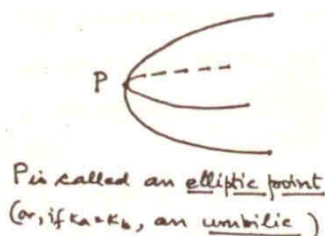 P
P is called an elliptic point
(or, if κa = κb, an umbilic)